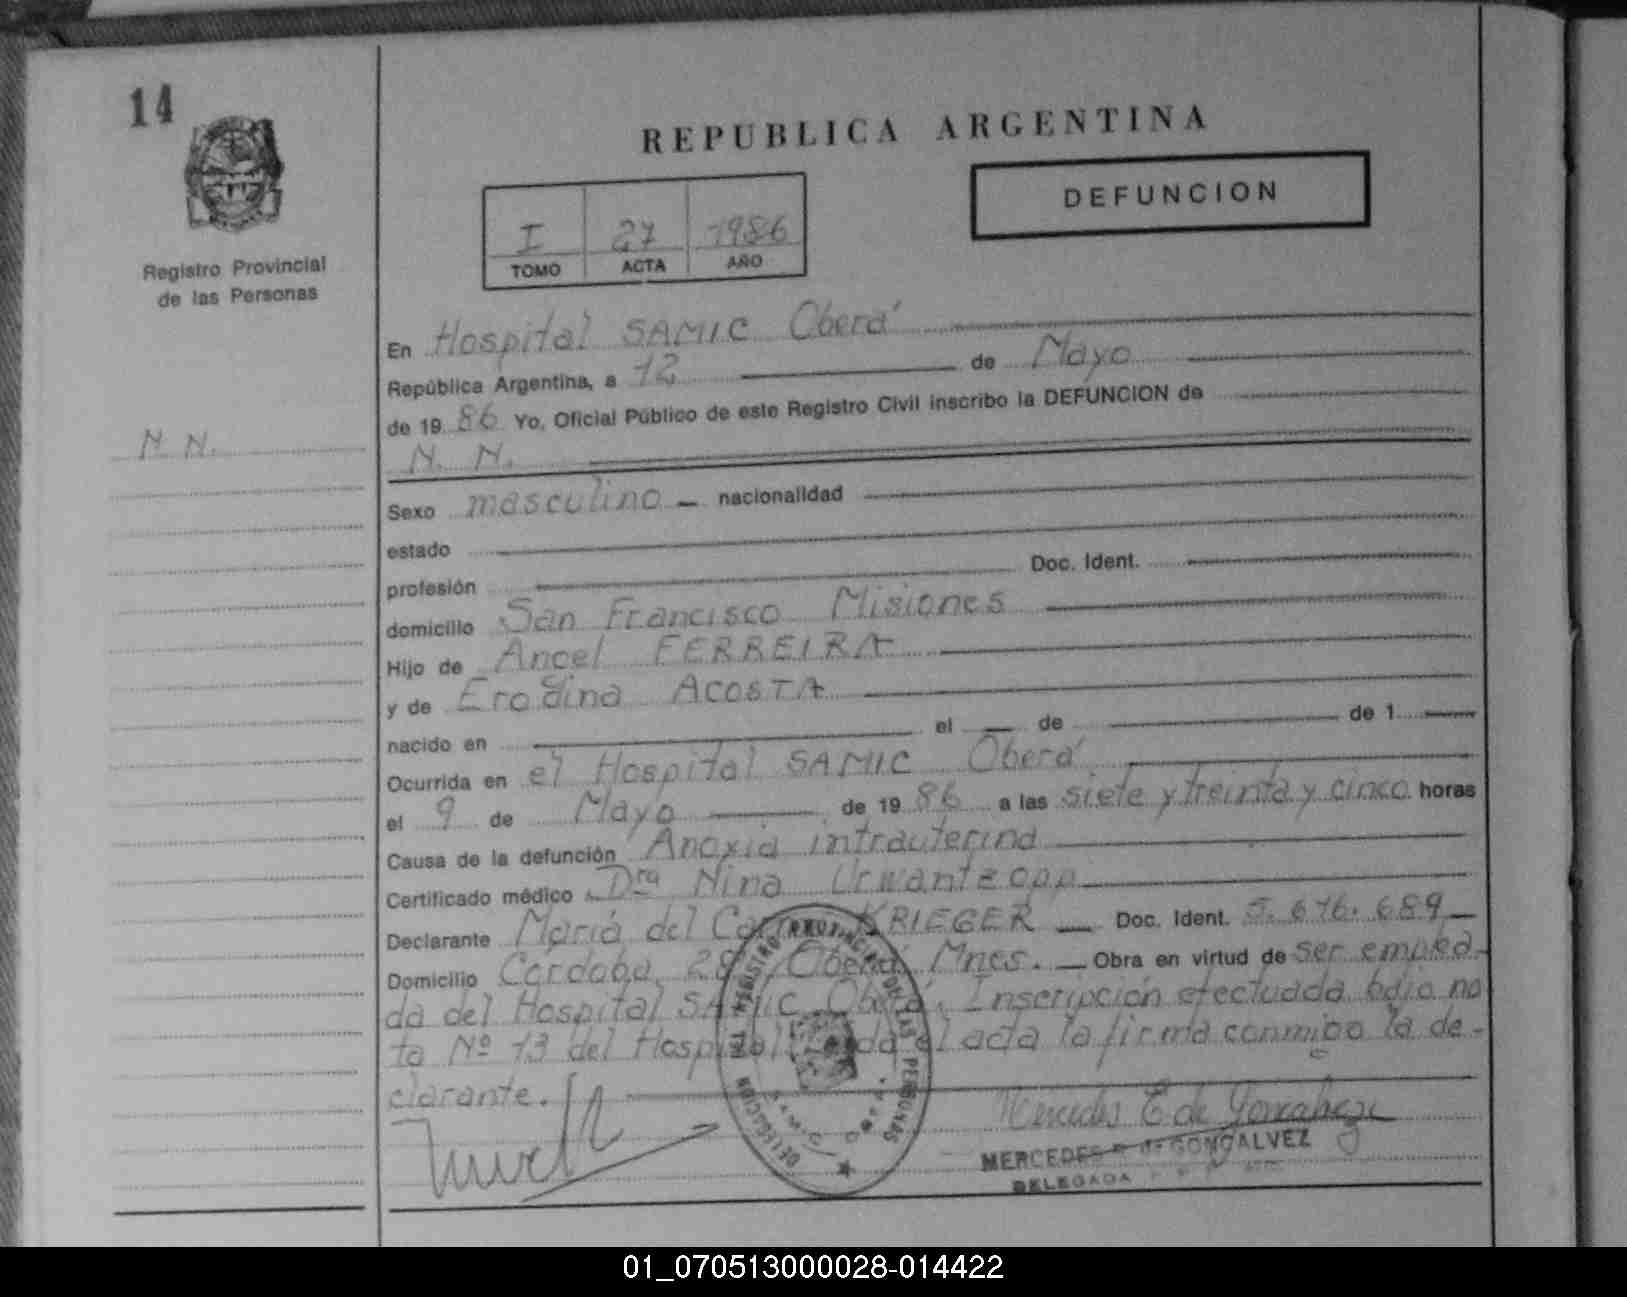 14
REPUBLICA ARGENTINA
DEFUNCION
I 27 1986
TOMO ACTA AÑO
Registro Provincial
de las Personas
En Hospital SAMIC Oberá
República Argentina, a 12 de Mayo
de 19 86 Yo, Oficial Público de este Registro Civil inscribo la DEFUNCION de
N. N.
N. N.
Sexo masculino nacionalidad
estado
profesión Doc. Ident.
domicilio San Francisco Misiones
Hijo de Angel FERREIRA
y de Erogina ACOSTA
nacido en el de de 1
Ocurrida en el Hospital SAMIC Oberá
el 9 de Mayo de 19 86 a las siete y treinta y cinco horas
Causa de la defunción Anoxia intrauterina
Certificado médico Dra Nina
Declarante María del KRIEGER Doc. Ident. 5.676.689
Domicilio Córdoba Oberá, Mnes. Obra en virtud de ser emplea-
da del Hospital SAMIC Oberá. Inscripción efectuada bajo no
ta Nº 13 del Hospital el acta la firma conmigo la de-
clarante.
Mercedes E de Goncalvez
MERCEDES E. de GONÇALVEZ
DELEGADA
REGISTRO PROVINCIAL DE LAS PERSONAS
DELEGACION
01_070513000028-014422